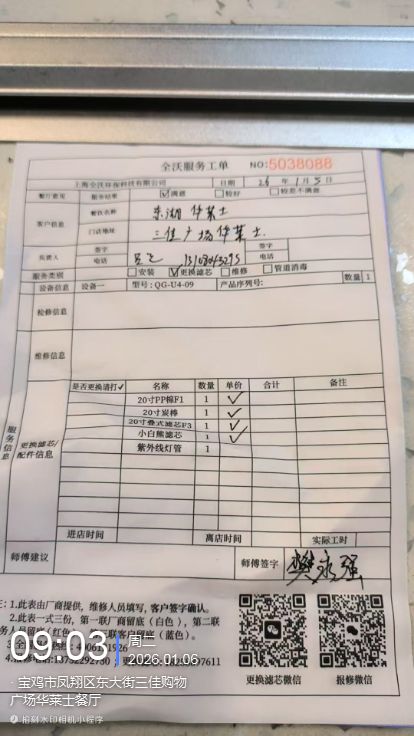 全沃服务工单 NO:5038088
上海全沃环保科技有限公司 日期 26年1月5日
餐厅意见 服务结果 ☑满意 □较好 □较差不满意
客户信息 餐饮名称 东湖华莱士
门店地址 三佳广场华莱士.
负责人 签字 签字
电话 电话
服务类别 □安装 ☑更换滤芯 □维修 □管道消毒
设备信息 设备一 型号:QG-U4-09 产品序列号: 数量 1
检修信息
维修信息
服务信息
更换滤芯/配件信息
是否更换请打✓ 名称 数量 单价 合计 备注
20寸PP棉F1 1 ✓
20寸炭棒 1 ✓
20寸叠式滤芯F3 1 ✓
小白熊滤芯 1 ✓
紫外线灯管 1
进店时间 离店时间 实际工时
师傅建议 师傅签字 樊永强
注:1.此表由厂商提供,维修人员填写,客户签字确认。
2.此表一式三份,第一联厂商留底(白色),第二联
务人员留底(红色) 联客户留底(蓝色)。
更换滤芯微信 报修微信
09:03 周二
2026.01.06
·宝鸡市凤翔区东大街三佳购物
广场华莱士餐厅
拍刻水印相机小程序